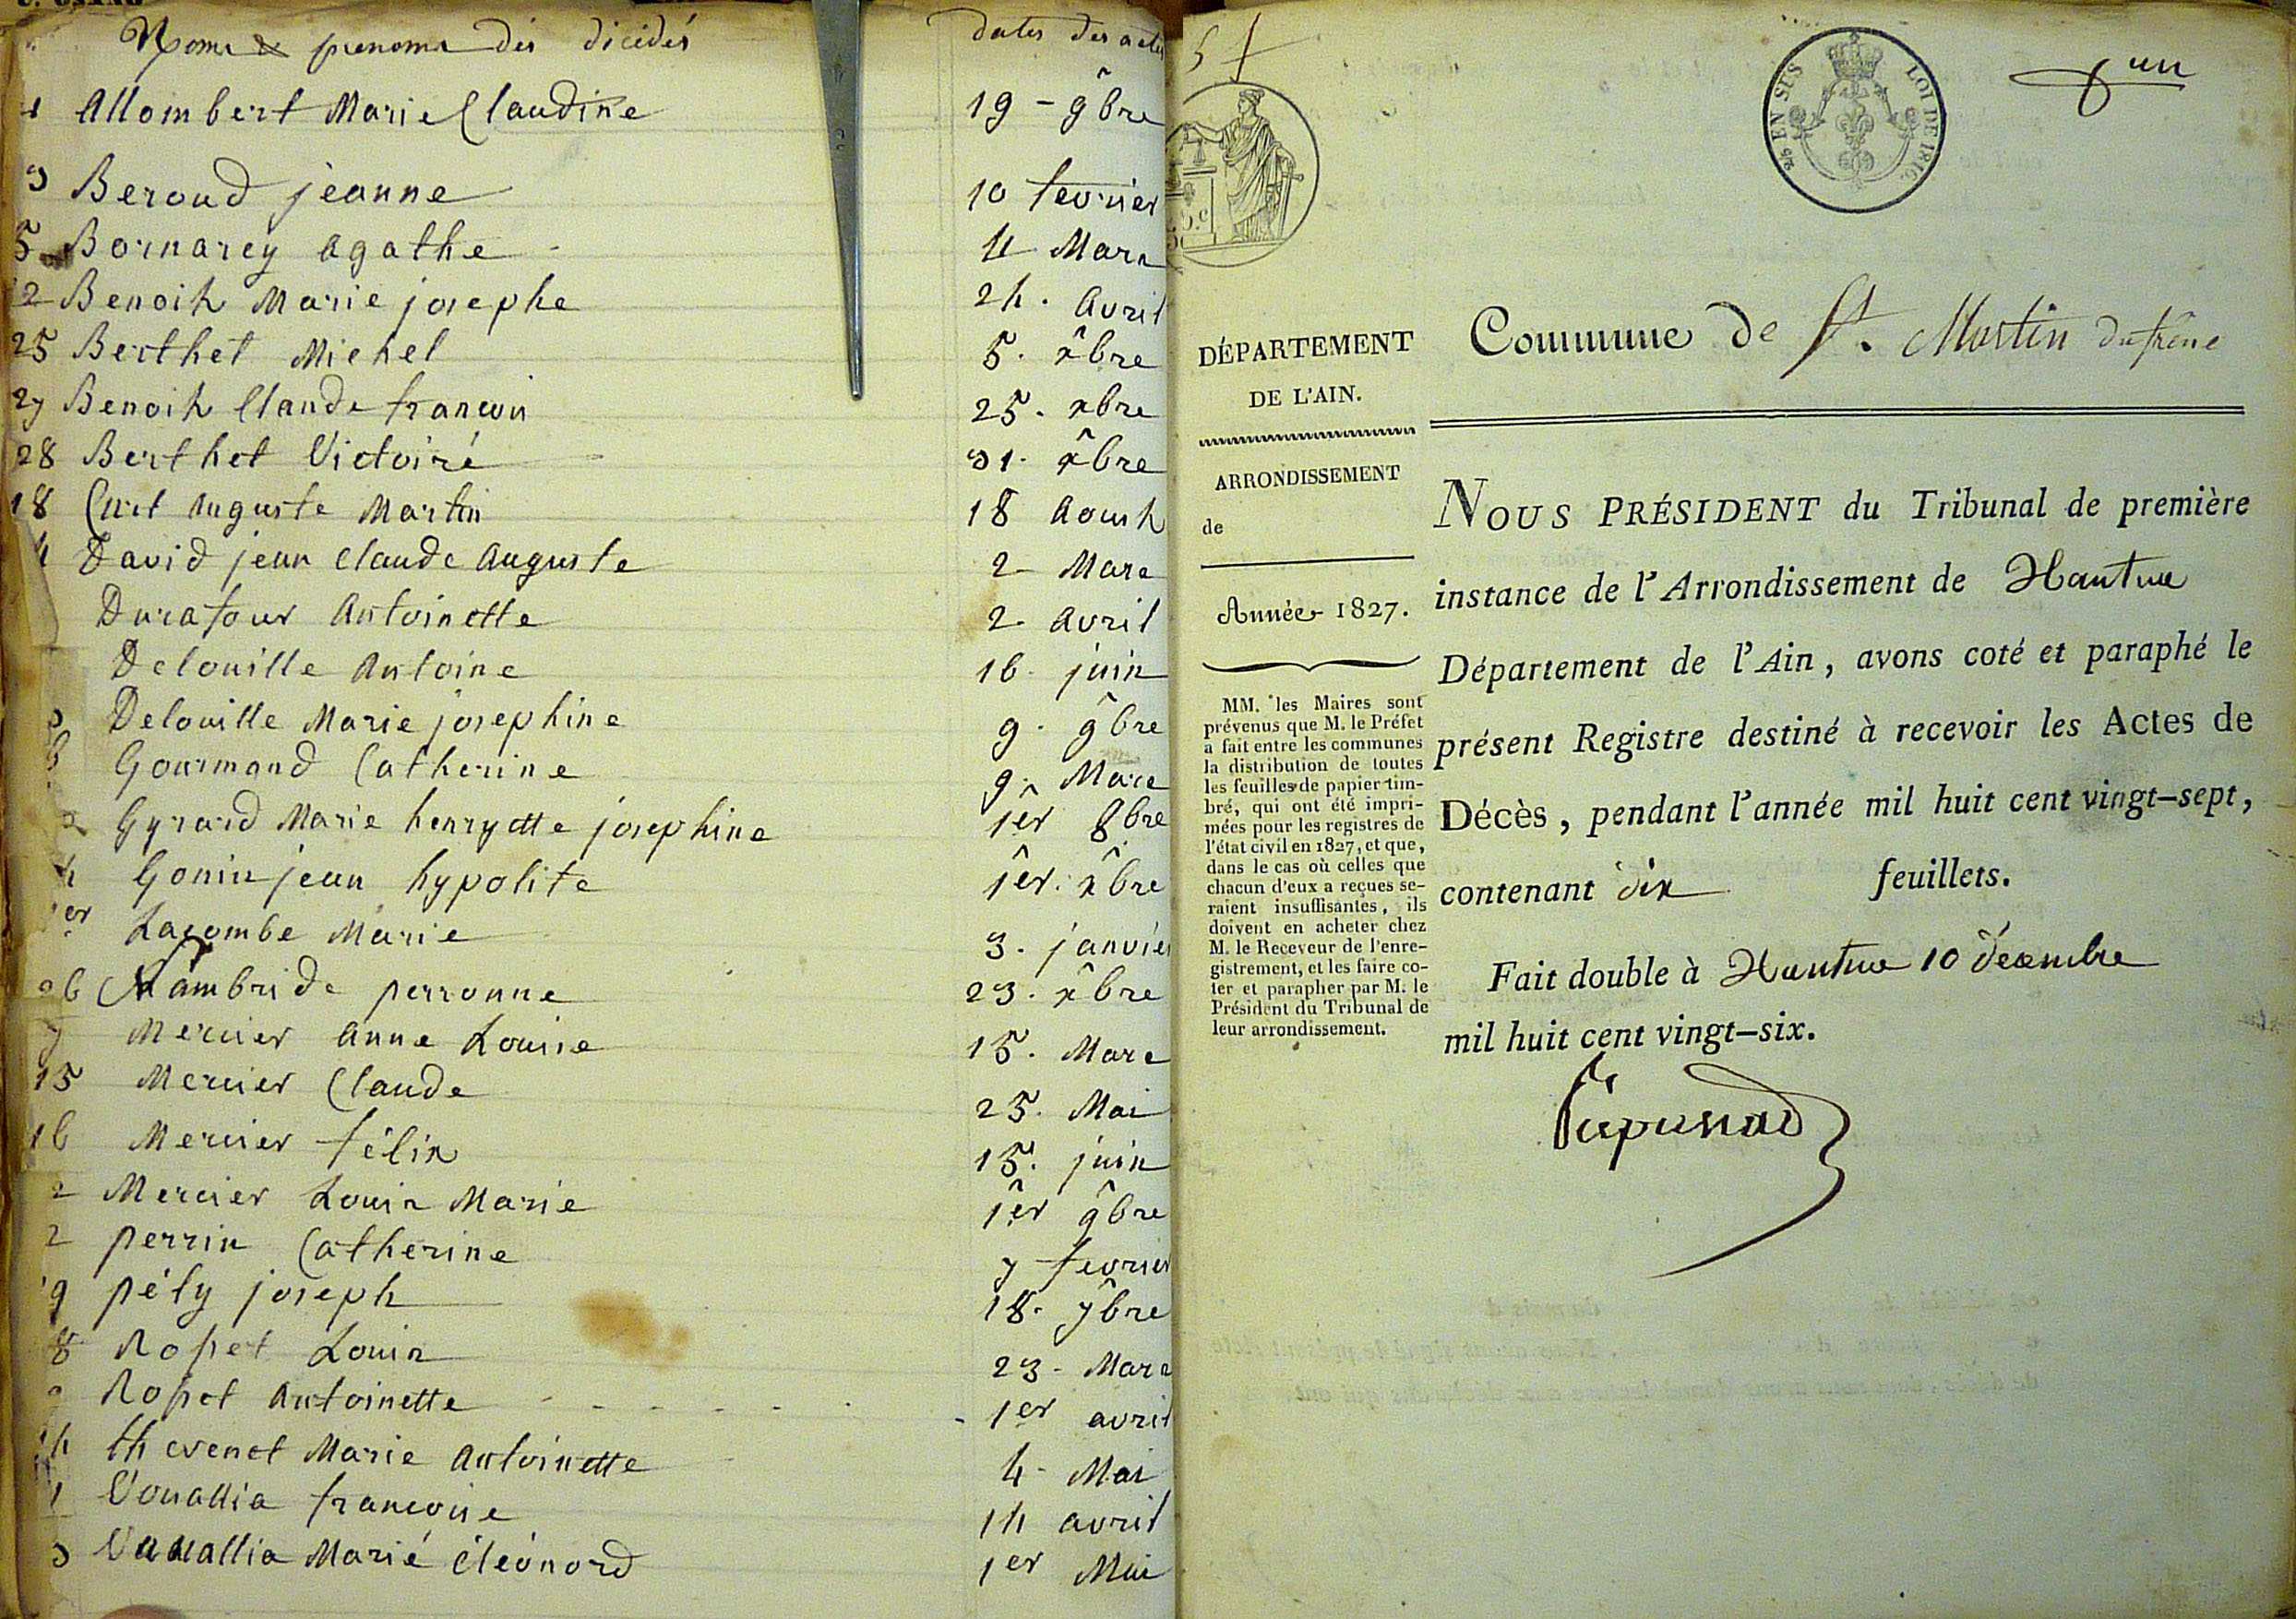 Noms & prenoms des décédés dates des actes
Allombert Marie Claudine 19 - 9bre
3 Beroud jeanne 10 fevrier
5 Bornarey agathe 4 Mars
12 Benoit Marie josephe 24. avril
25 Berthet Michel 5. xbre
27 Benoit Claude francois 25. xbre
28 Berthet Victoire 31. xbre
18 Curt auguste Martin 18 Aoust
4 David jean claude auguste 2 Mars
Durafour antoinette 2. avril
Delouille antoine 16. juin
Delouille Marie josephine 9. 9bre
6 Gourmand Catherine 9. Mars
Gyrard Marie henryette josephine 1er 8bre
Gonin jean hypolite 1er. xbre
1er Lacombe Marie 3. janvier
26 Mambride perronne 23. xbre
7 Mercier anne Louise 15. Mars
15 Mercier Claude 25. Mai
16 Mercier félix 15. juin
2 Mercier Louis Marie 1er 9bre
2 perrin Catherine 7 fevrier
19 pély joseph 18. 7bre
8 Ropet Louis 23 - Mars
Ropet antoinette 1er avril
14 thevenet Marie antoinette 4 - Mai
1 Vouallia francoise 14 avril
3 Vauallia Marie éléonord 1er Mai
un
25 EN SUS LOI DE 1816.
5.c
DÉPARTEMENT
DE L'AIN.
ARRONDISSEMENT
de
Année 1827.
MM. les Maires sont
prévenus que M. le Préfet
a fait entre les communes
la distribution de toutes
les feuilles de papier tim-
bré, qui ont été impri-
mées pour les registres de
l'état civil en 1827, et que,
dans le cas où celles que
chacun d'eux a reçues se-
raient insuffisantes, ils
doivent en acheter chez
M. le Receveur de l'enre-
gistrement, et les faire co-
ter et parapher par M. le
Président du Tribunal de
leur arrondissement.
Commune de St. Martin dufrêne
NOUS PRÉSIDENT du Tribunal de première
instance de l'Arrondissement de Nantua
Département de l'Ain, avons coté et paraphé le
présent Registre destiné à recevoir les Actes de
Décès, pendant l'année mil huit cent vingt-sept,
contenant dix feuillets.
Fait double à Nantua 10 décembre
mil huit cent vingt-six.